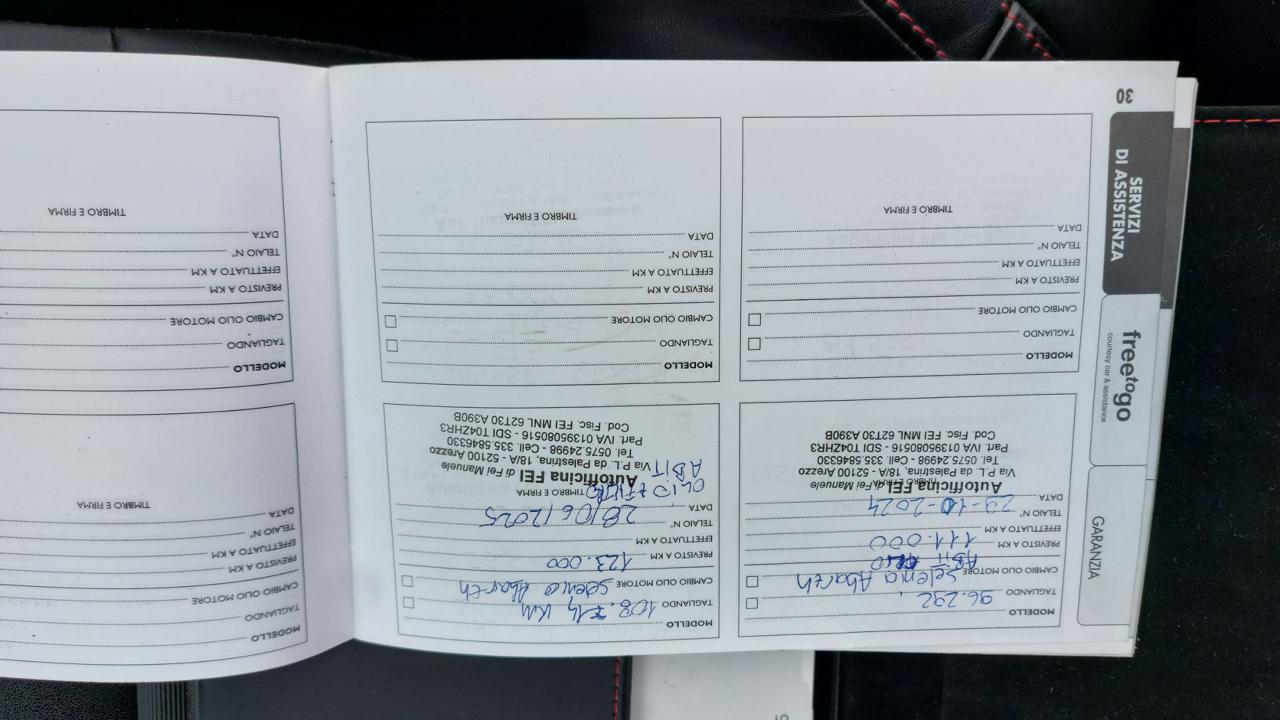 GARANZIA
freetogo
courtesy car & assistance
SERVIZI
DI ASSISTENZA
30
MODELLO
96.292
TAGLIANDO
Selenia Abarth
CAMBIO OLIO MOTORE
PREVISTO A KM
111.000
EFFETTUATO A KM
TELAIO N°
29-10-2024
DATA
TIMBRO E FIRMA
Autofficina FEI di Fei Manuele
Via P.L. da Palestrina, 18/A - 52100 Arezzo
Tel. 0575.24998 - Cell. 335.5846330
Part. IVA 01395080516 - SDI T04ZHR3
Cod. Fisc. FEI MNL 62T30 A390B
MODELLO
KM
TAGLIANDO
Selenia Abarth
CAMBIO OLIO MOTORE
123.000
PREVISTO A KM
EFFETTUATO A KM
TELAIO N°
28/06/2025
DATA
TIMBRO E FIRMA
OLIO + FILTRO
ABIT
Autofficina FEI di Fei Manuele
Via P.L. da Palestrina, 18/A - 52100 Arezzo
Tel. 0575.24998 - Cell. 335.5846330
Part. IVA 01395080516 - SDI T04ZHR3
Cod. Fisc. FEI MNL 62T30 A390B
MODELLO
TAGLIANDO
CAMBIO OLIO MOTORE
PREVISTO A KM
EFFETTUATO A KM
TELAIO N°
DATA
TIMBRO E FIRMA
MODELLO
TAGLIANDO
CAMBIO OLIO MOTORE
PREVISTO A KM
EFFETTUATO A KM
TELAIO N°
DATA
TIMBRO E FIRMA
MODELLO
TAGLIANDO
CAMBIO OLIO MOTORE
PREVISTO A KM
EFFETTUATO A KM
TELAIO N°
DATA
TIMBRO E FIRMA
MODELLO
TAGLIANDO
CAMBIO OLIO MOTORE
PREVISTO A KM
EFFETTUATO A KM
TELAIO N°
DATA
TIMBRO E FIRMA